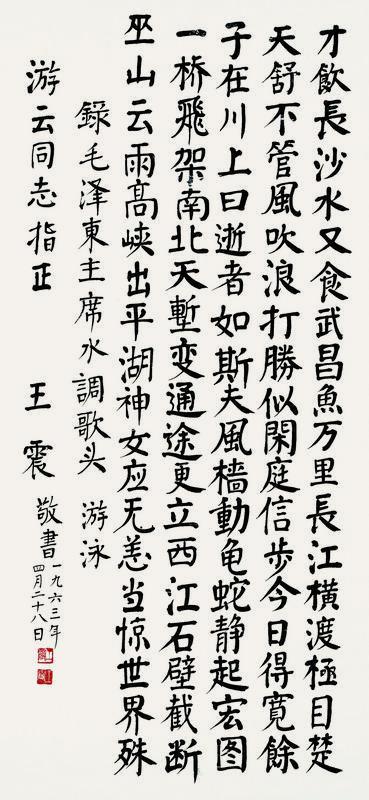 才飲長沙水又食武昌魚万里長江橫渡極目楚
天舒不管風吹浪打勝似閑庭信步今日得寬餘
子在川上曰逝者如斯夫風檣動龟蛇静起宏图
一桥飛架南北天塹变通途更立西江石壁截断
巫山云雨髙峡出平湖神女应无恙当惊世界殊
錄毛泽東主席水調歌头 游泳
游云同志指正 王震 敬書
一九六三年
四月二十八日